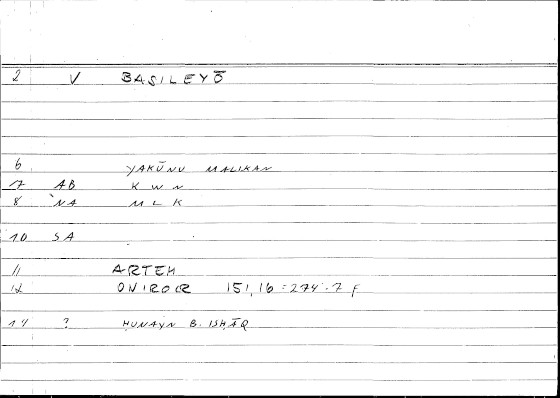 2 V BASILEYŌ
6 YAKŪNU MALIKAN
7 AB K W N
8 NA M L K
10 SA
11 ARTEM
12 ONIROCR 151,16 = 274.7 F
14 ? HUNAYN B. ISḤĀQ